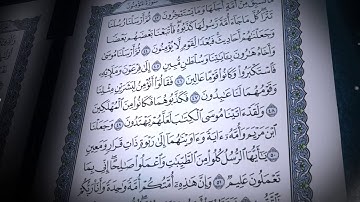 مَا تَسْبِقُ مِنْ أُمَّةٍ أَجَلَهَا وَمَا يَسْتَـْٔخِرُونَ ٤٣ ثُمَّ أَرْسَلْنَا رُسُلَنَا
تَتْرَا كُلَّ مَا جَآءَ أُمَّةً رَّسُولُهَا كَذَّبُوهُ فَأَتْبَعْنَا بَعْضَهُم بَعْضًا
وَجَعَلْنَٰهُمْ أَحَادِيثَ فَبُعْدًا لِّقَوْمٍ لَّا يُؤْمِنُونَ ٤٤ ثُمَّ أَرْسَلْنَا مُوسَىٰ
وَأَخَاهُ هَٰرُونَ بِـَٔايَٰتِنَا وَسُلْطَٰنٍ مُّبِينٍ ٤٥ إِلَىٰ فِرْعَوْنَ وَمَلَإِي۟هِۦ
فَٱسْتَكْبَرُوا۟ وَكَانُوا۟ قَوْمًا عَالِينَ ٤٦ فَقَالُوٓا۟ أَنُؤْمِنُ لِبَشَرَيْنِ مِثْلِنَا
وَقَوْمُهُمَا لَنَا عَٰبِدُونَ ٤٧ فَكَذَّبُوهُمَا فَكَانُوا۟ مِنَ ٱلْمُهْلَكِينَ
٤٨ وَلَقَدْ ءَاتَيْنَا مُوسَى ٱلْكِتَٰبَ لَعَلَّهُمْ يَهْتَدُونَ ٤٩ وَجَعَلْنَا
ٱبْنَ مَرْيَمَ وَأُمَّهُۥٓ ءَايَةً وَءَاوَيْنَٰهُمَآ إِلَىٰ رَبْوَةٍ ذَاتِ قَرَارٍ وَمَعِينٍ
٥٠ يَٰٓأَيُّهَا ٱلرُّسُلُ كُلُوا۟ مِنَ ٱلطَّيِّبَٰتِ وَٱعْمَلُوا۟ صَٰلِحًا إِنِّي بِمَا
تَعْمَلُونَ عَلِيمٌ ٥١ وَإِنَّ هَٰذِهِۦٓ أُمَّتُكُمْ أُمَّةً وَٰحِدَةً وَأَنَا۠ رَبُّكُمْ